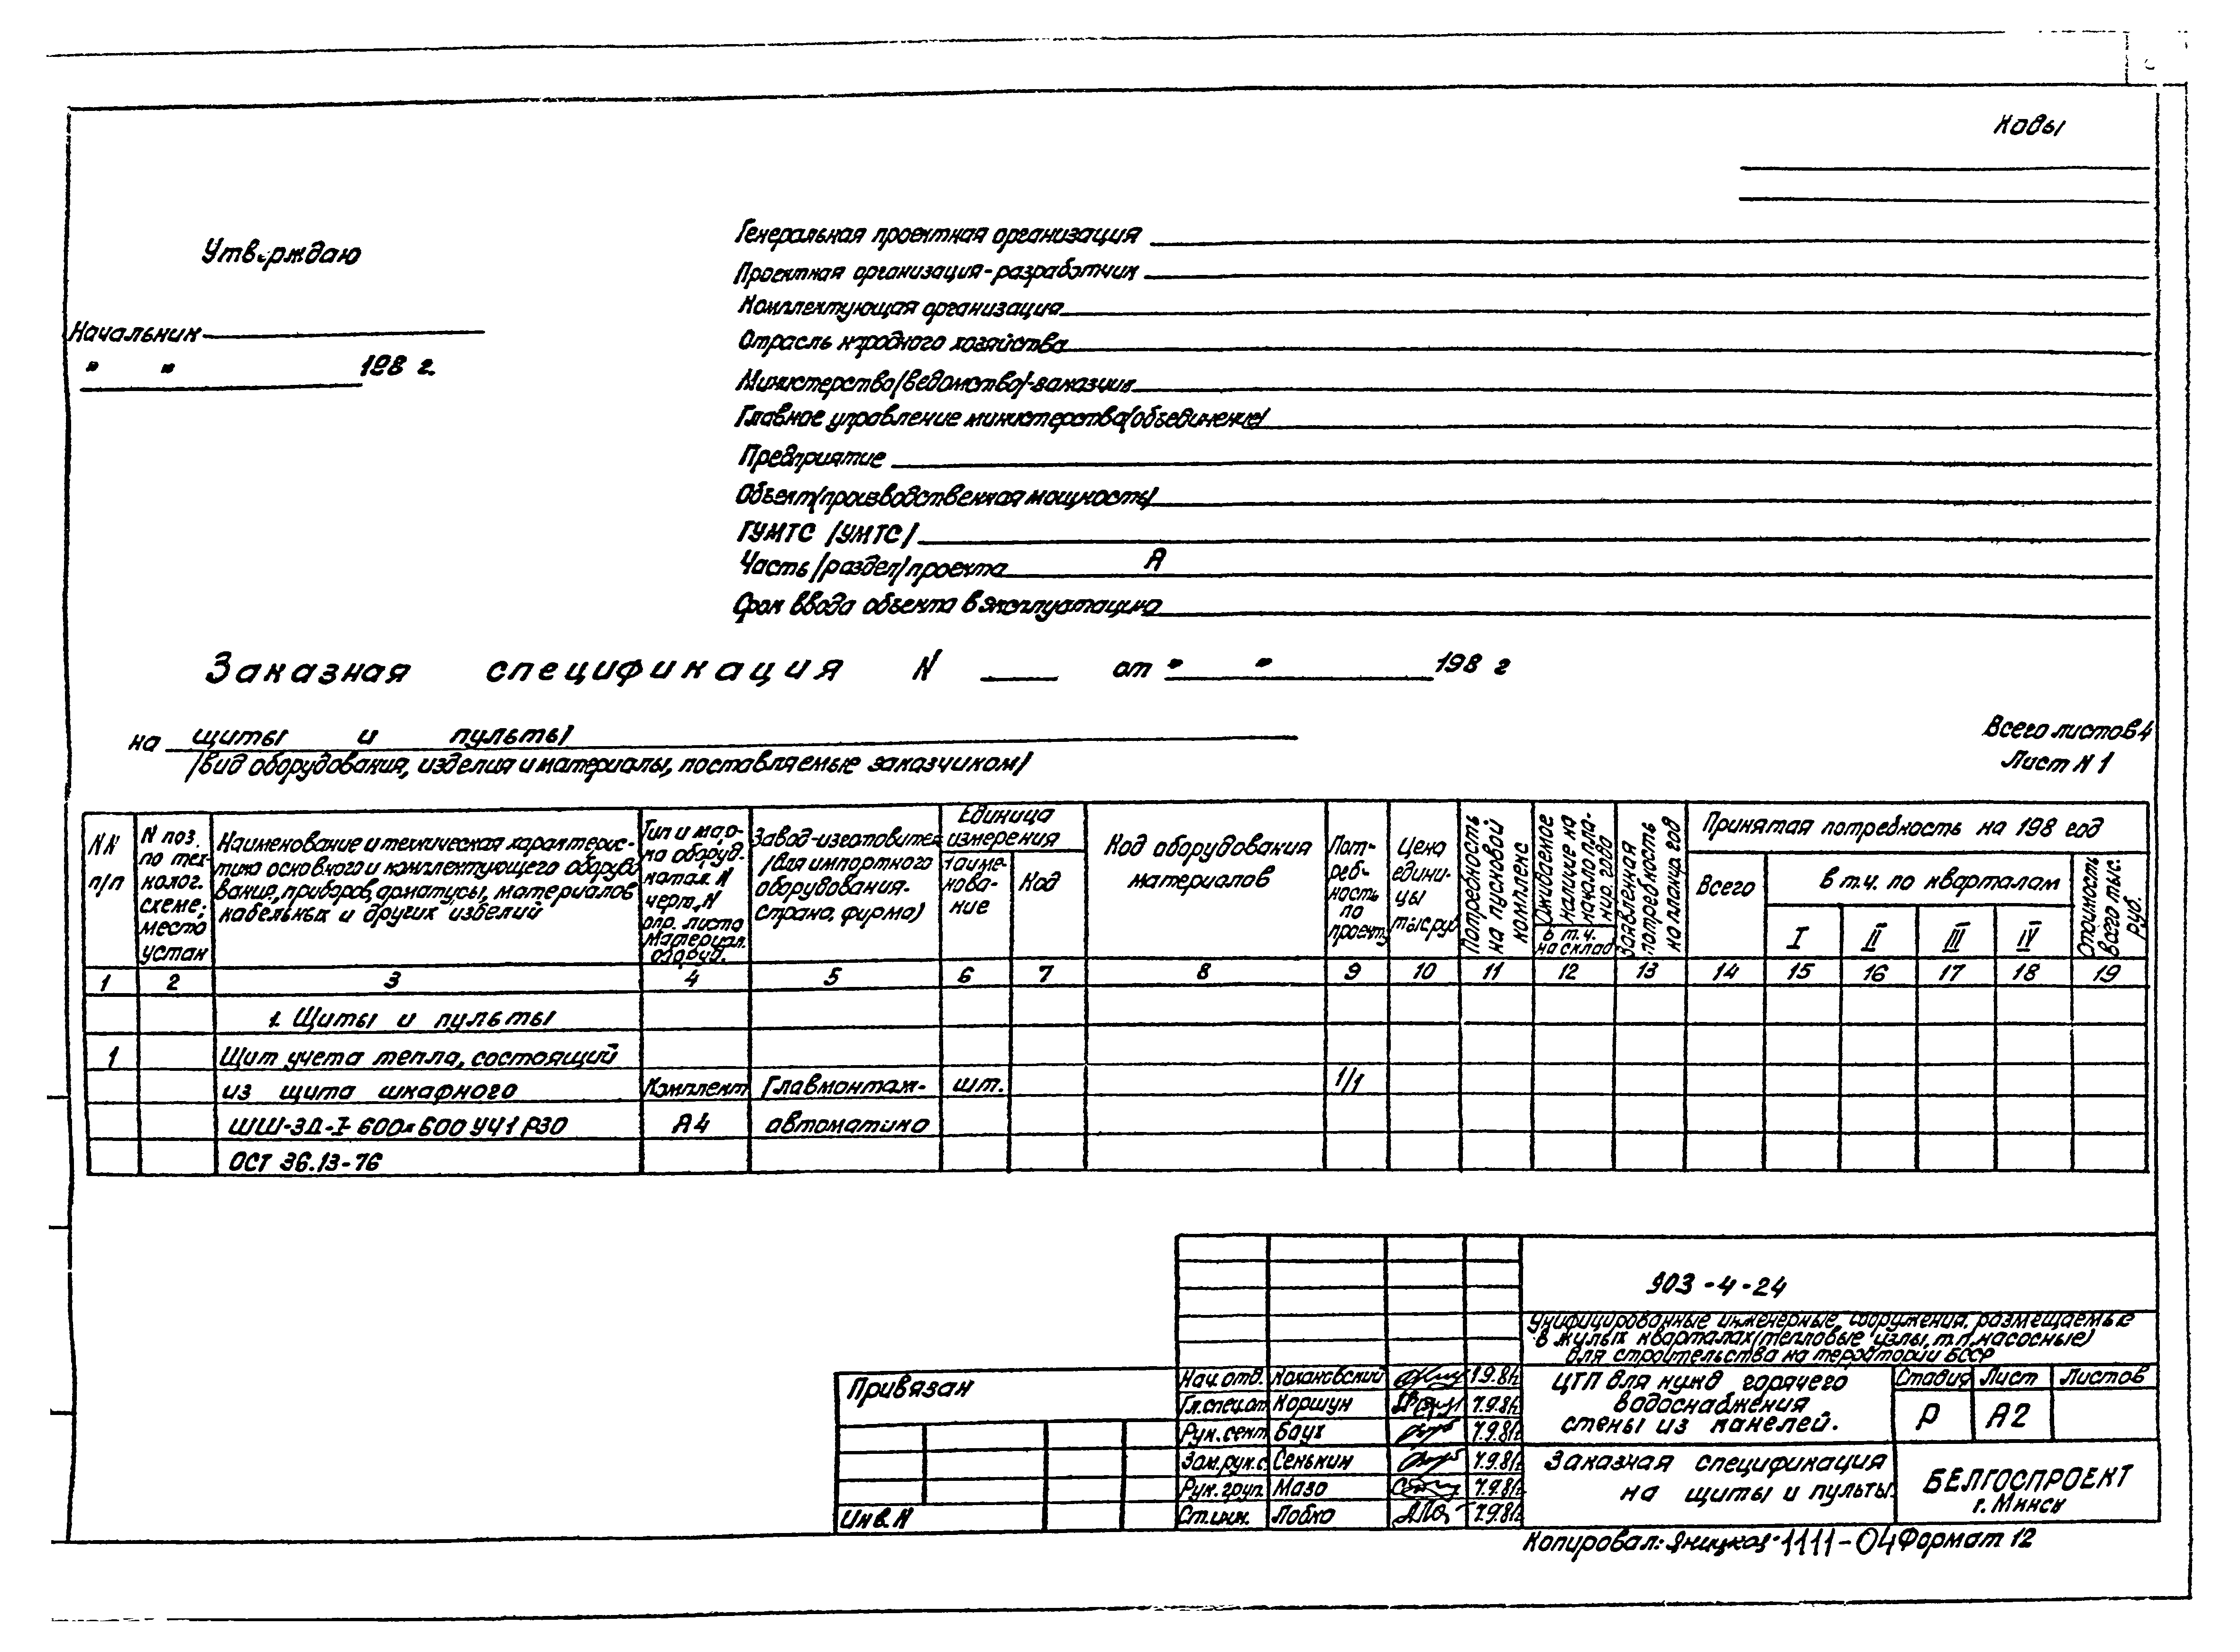 Коды
Утверждаю
Начальник
" " 198 г.
Генеральная проектная организация
Проектная организация-разработчик
Комплектующая организация
Отрасль народного хозяйства
Министерство/ведомство/-заказчик
Главное управление министерства/объединение/
Предприятие
Объект/производственная мощность/
ГУМТС /УМТС/
Часть/раздел/проекта А
Срок ввода объекта в эксплуатацию
Заказная спецификация N от " " 198 г
на щиты и пульты
/вид оборудования, изделия и материалы, поставляемые заказчиком/
Всего листов 4
Лист N 1
NN
п/п
N поз.
по тех-
нолог.
схеме;
место
устан
Наименование и техническая характерис-
тика основного и комплектующего оборудо
вания, приборов, арматуры, материалов
кабельных и других изделий
Тип и мар-
ка оборуд.
катал. N
черт., N
опр. листа
Материал.
оборуд.
Завод-изготовител
/для импортного
оборудования-
страна, фирма)
Единица
измерения
наиме-
нова-
ние
Код
Код оборудования
материалов
Пот-
реб-
ность
по
проекту
Цена
едини-
цы
тыс.руб
Потребность
на пусковой
комплекс
Ожидаемое
наличие на
начало пла-
нир. года
в т.ч.
на склад
Заявленная
потребность
на планир. год
Принятая потребность на 198 год
Всего
в т.ч. по кварталам
I II III IV
Стоимость
всего тыс.
руб.
1 2 3 4 5 6 7 8 9 10 11 12 13 14 15 16 17 18 19
1. Щиты и пульты
1 Щит учета тепла, состоящий
из щита шкафного Комплект Главмонтаж- шт. 1/1
ШШ-ЗД-I-600×600 УЧ1 Р30 А4 автоматика
ОСТ 36.13-76
903-4-24
Унифицированные инженерные сооружения, размещаемые
в жилых кварталах (тепловые узлы, т.п. насосные)
для строительства на территории БССР
Привязан
Инв.N
Нач. отд.
Гл.спец.от Коршун
Рук. сект Баух
Зам.рук.с. Сенькин
Рук. груп. Мазо
Ст.инж. Лобко
ЦТП для нужд горячего
водоснабжения
стены из панелей.
Стадия Лист Листов
Р А2
Заказная спецификация
на щиты и пульты.
БЕЛГОСПРОЕКТ
г. Минск
Копировал: 1111-04 Формат 12